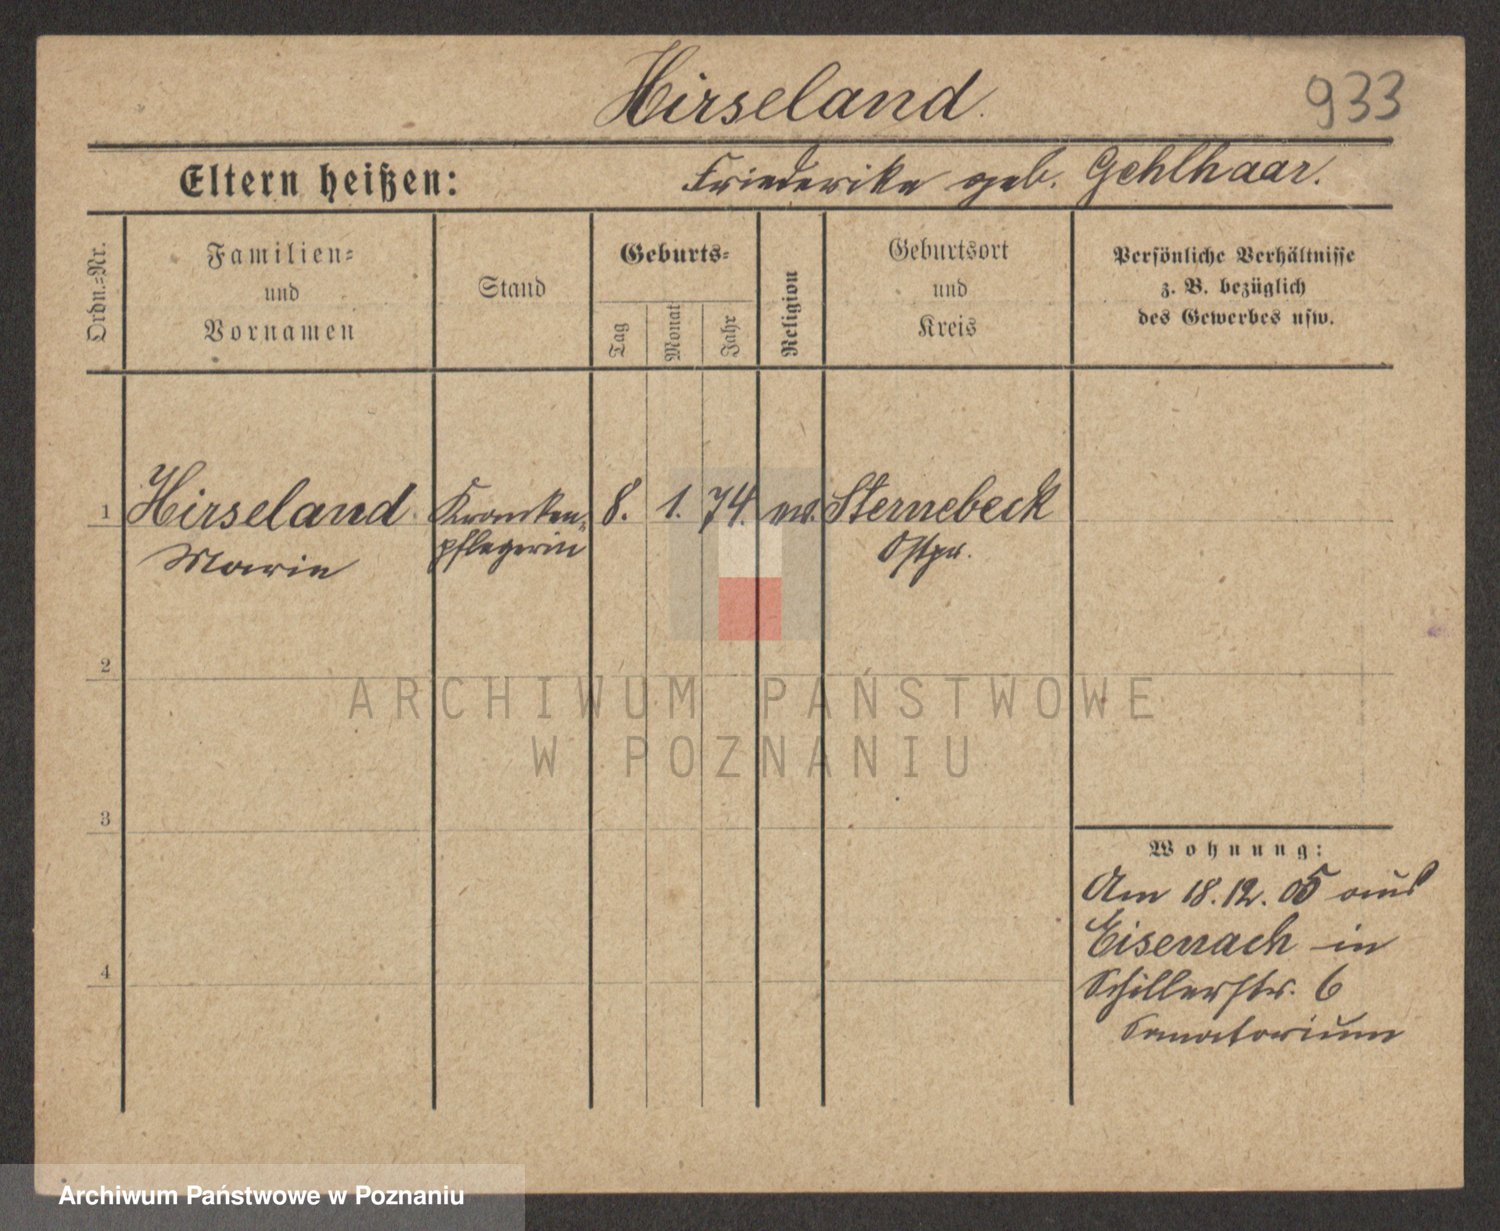 Hirseland.
933
Eltern heißen:
Friederike geb. Gehlhaar.
Ordn.-Nr.
Familien-
und
Vornamen
Stand
Geburts-
Tag
Monat
Jahr
Religion
Geburtsort
und
Kreis
Persönliche Verhältnisse
z. B. bezüglich
des Gewerbes usw.
1 Hirseland Kranken- 8. 1. 74. ev. Sternebeck
Marie pflegerin Ostpr.
2
3
4
Wohnung:
Am 18.12.05 aus
Eisenach in
Schillerstr. 6
Sanatorium
ARCHIWUM PAŃSTWOWE
W POZNANIU
Archiwum Państwowe w Poznaniu